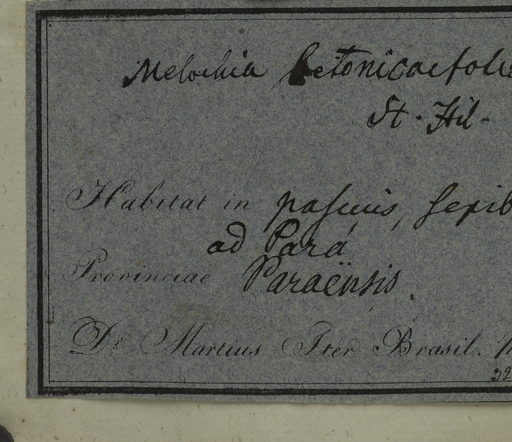 Melochia betonicaefoli
St. Hil.
Habitat in pascuis, sepib
ad Pará
Provinciae Paraënsis.
Dr Martius Iter Brasil.
32